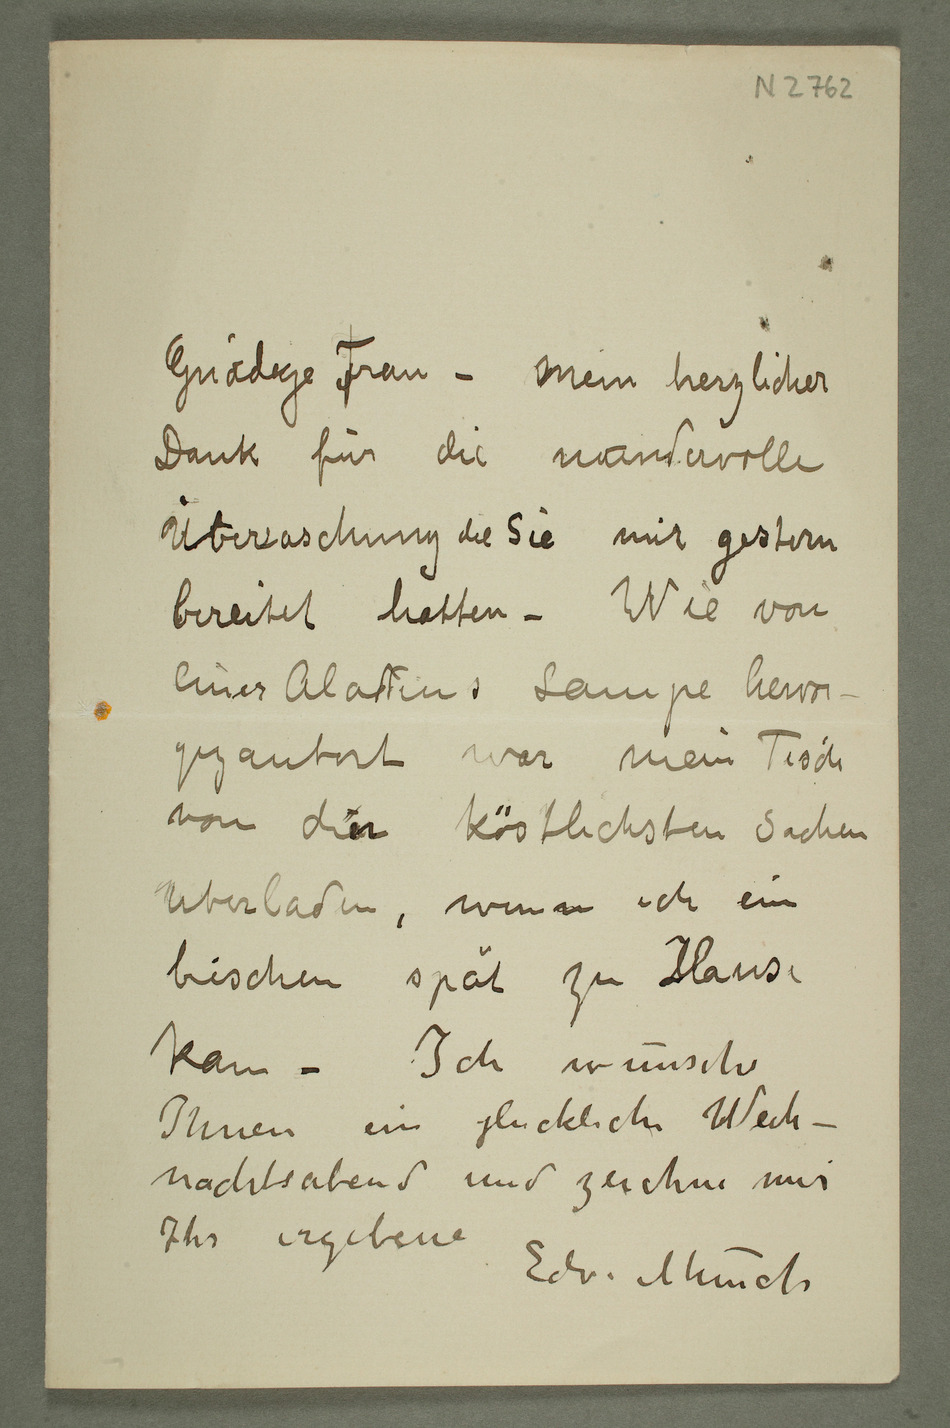 N 2762
Gnädige Frau – mein herzlicher
Dank für die wundervolle
Überraschung die Sie mir gestern
bereitet hatten – Wie von
einer Aladins Lampe hervor-
gezaubert war mein Tisch
von den köstlichsten Sachen
uberladen, wenn ich ein
bischen spät zu Hause
kam – Ich wünsche
Ihnen ein gluckliche Weih-
nachtsabend und zeichne mir
Ihr ergebene
Edv. Munch